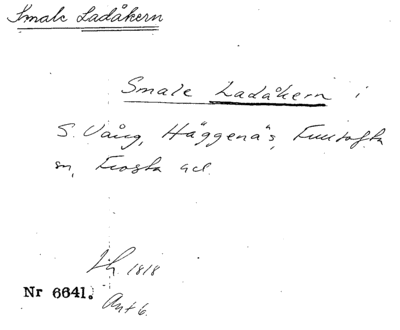 Smale Ladåkern
Smale Ladåkern i
S. Vång, Häggenäs, Fulltofta
sn, Frosta hd.
Lh. 1818
Nr 6641.
Akt 6.